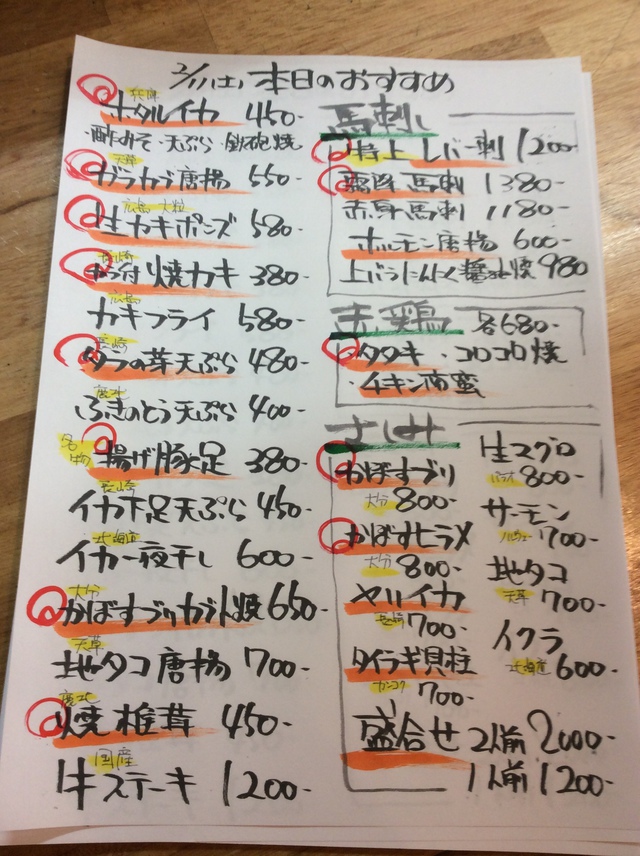 2/11(土) 本日のおすすめ
兵庫
ホタルイカ 450-
・酢みそ・天ぷら・鉄砲焼
天草
ガラカブ唐揚 550-
広島 大粒
生カキポンズ 580-
長崎
から付焼カキ 380-
広島
カキフライ 580-
長崎
タラの芽天ぷら 480-
ふきのとう天ぷら 400-
名物
揚げ豚足 380-
長崎
イカ下足天ぷら 450-
北海道
イカ一夜干し 600-
大分
かぼすブリカブト焼 650-
天草
地タコ唐揚 700-
焼椎茸 450-
国産
牛ステーキ 1200-
馬刺し
特上レバー刺 1200-
霜降馬刺 1380-
赤身馬刺 1180-
ホルモン唐揚 600-
上バラにんにく醤油焼 980
赤鶏 各680-
・タタキ・コロコロ焼
・チキン南蛮
さしみ
かぼすブリ
大分 800-
かぼすヒラメ
大分 800-
ヤリイカ
長崎 700-
タイラギ貝柱
カンコク 700-
生マグロ
800-
サーモン
ノルウェー 700-
地タコ
天草 700-
イクラ
北海道 600-
盛合せ 2人前 2000-
1人前 1200-